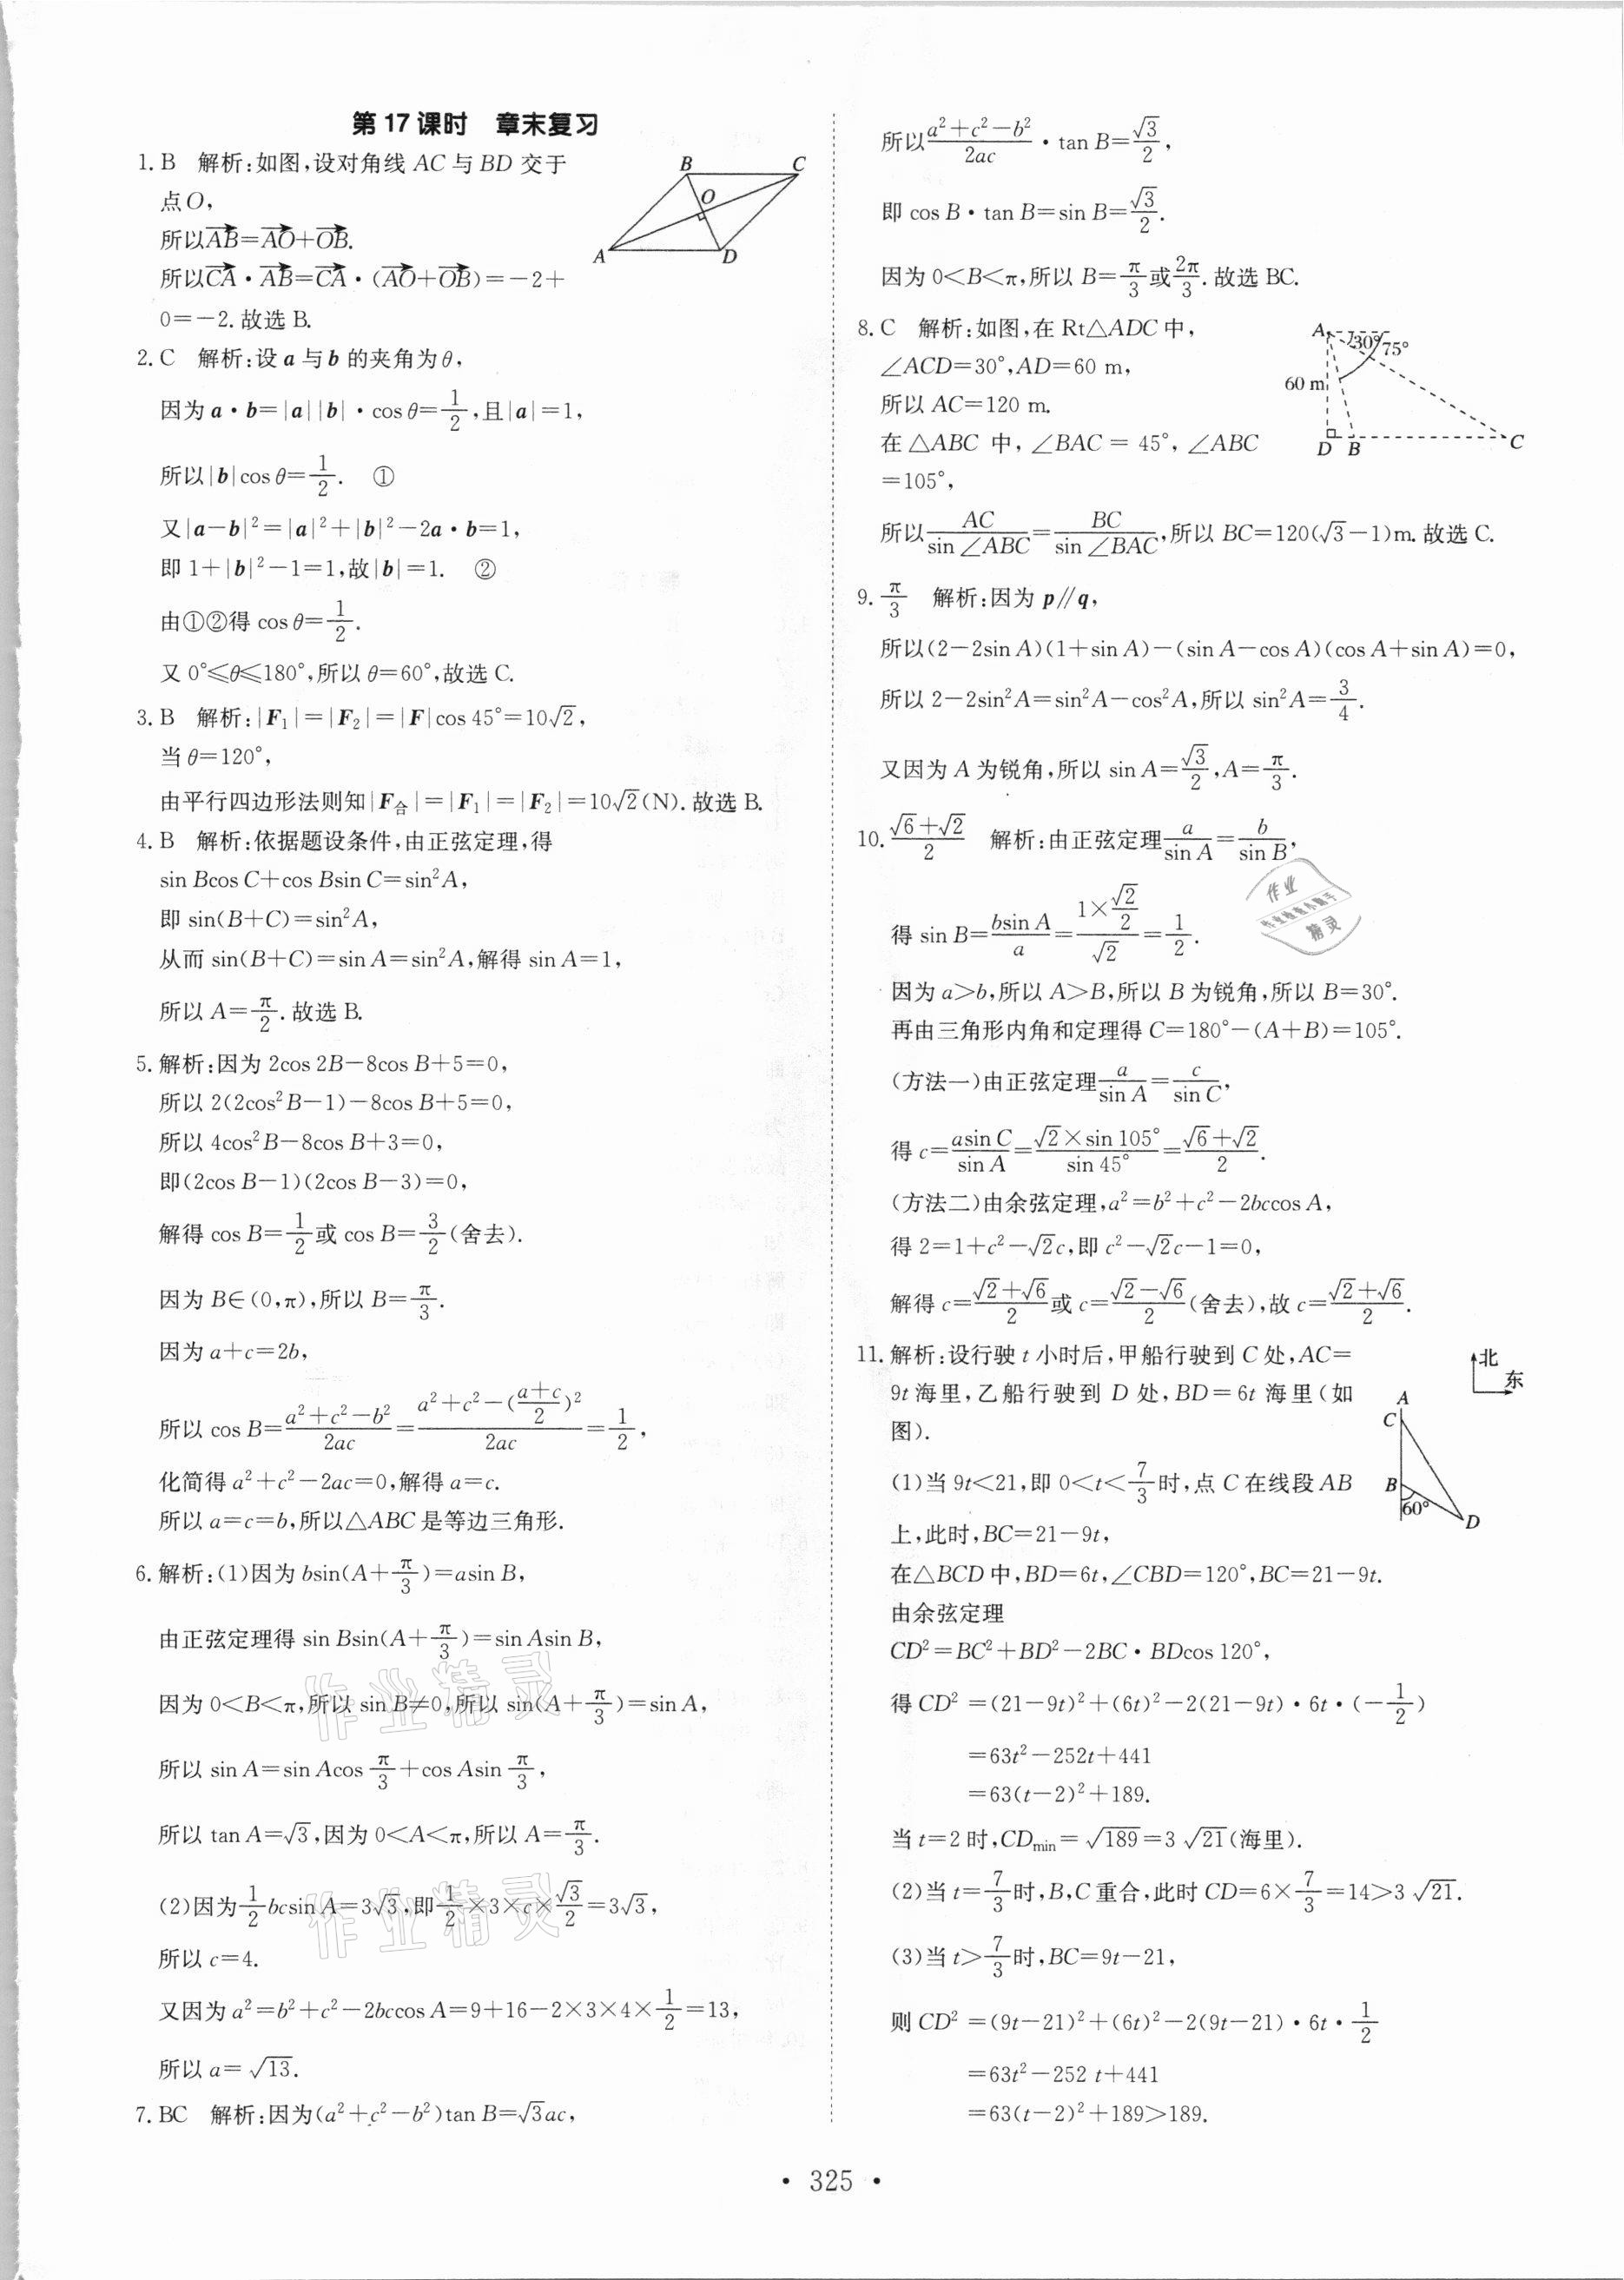 第17课时 章末复习
1. B 解析:如图,设对角线 AC 与 BD 交于
点O,
所以$\overrightarrow{AB}=\overrightarrow{AO}+\overrightarrow{OB}$.
所以$\overrightarrow{CA}\cdot\overrightarrow{AB}=\overrightarrow{CA}\cdot(\overrightarrow{AO}+\overrightarrow{OB})=-2+$
0=-2.故选 B.
B C O A D
2. C 解析:设 a 与 b 的夹角为θ,
因为 a·b=|a||b|·cos θ=$\frac{1}{2}$,且|a|=1,
所以|b|cos θ=$\frac{1}{2}$. ①
又|a-b|²=|a|²+|b|²-2a·b=1,
即 1+|b|²-1=1,故|b|=1. ②
由①②得 cos θ=$\frac{1}{2}$.
又 0°≤θ≤180°,所以 θ=60°,故选 C.
3. B 解析:|F₁|=|F₂|=|F|cos 45°=10√2,
当 θ=120°,
由平行四边形法则知|F合|=|F₁|=|F₂|=10√2(N).故选 B.
4. B 解析:依据题设条件,由正弦定理,得
sin Bcos C+cos Bsin C=sin²A,
即 sin(B+C)=sin²A,
从而 sin(B+C)=sin A=sin²A,解得 sin A=1,
所以 A=$\frac{π}{2}$.故选 B.
5. 解析:因为 2cos 2B-8cos B+5=0,
所以 2(2cos²B-1)-8cos B+5=0,
所以 4cos²B-8cos B+3=0,
即(2cos B-1)(2cos B-3)=0,
解得 cos B=$\frac{1}{2}$或 cos B=$\frac{3}{2}$(舍去).
因为 B∈(0,π),所以 B=$\frac{π}{3}$.
因为 a+c=2b,
所以 cos B=$\frac{a^2+c^2-b^2}{2ac}=\frac{a^2+c^2-(\frac{a+c}{2})^2}{2ac}=\frac{1}{2}$,
化简得 a²+c²-2ac=0,解得 a=c.
所以 a=c=b,所以△ABC 是等边三角形.
6. 解析:(1)因为 bsin(A+$\frac{π}{3}$)=asin B,
由正弦定理得 sin Bsin(A+$\frac{π}{3}$)=sin Asin B,
因为 0<B<π,所以 sin B≠0,所以 sin(A+$\frac{π}{3}$)=sin A,
所以 sin A=sin Acos $\frac{π}{3}$+cos Asin $\frac{π}{3}$,
所以 tan A=√3,因为 0<A<π,所以 A=$\frac{π}{3}$.
(2)因为$\frac{1}{2}$bcsin A=3√3,即$\frac{1}{2}$×3×c×$\frac{\sqrt{3}}{2}$=3√3,
所以 c=4.
又因为 a²=b²+c²-2bccos A=9+16-2×3×4×$\frac{1}{2}$=13,
所以 a=√13.
7. BC 解析:因为(a²+c²-b²)tan B=√3ac,
所以$\frac{a^2+c^2-b^2}{2ac}$·tan B=$\frac{\sqrt{3}}{2}$,
即 cos B·tan B=sin B=$\frac{\sqrt{3}}{2}$.
因为 0<B<π,所以 B=$\frac{π}{3}$或$\frac{2π}{3}$.故选 BC.
8. C 解析:如图,在 Rt△ADC 中,
∠ACD=30°,AD=60 m,
所以 AC=120 m.
在 △ABC 中,∠BAC = 45°,∠ABC
=105°,
A 30° 75° 60 m D B C
所以$\frac{AC}{\sin∠ABC}=\frac{BC}{\sin∠BAC}$,所以 BC=120(√3-1)m.故选 C.
9. $\frac{π}{3}$ 解析:因为 p∥q,
所以(2-2sin A)(1+sin A)-(sin A-cos A)(cos A+sin A)=0,
所以 2-2sin²A=sin²A-cos²A,所以 sin²A=$\frac{3}{4}$.
又因为 A 为锐角,所以 sin A=$\frac{\sqrt{3}}{2}$,A=$\frac{π}{3}$.
10. $\frac{\sqrt{6}+\sqrt{2}}{2}$ 解析:由正弦定理$\frac{a}{\sin A}=\frac{b}{\sin B}$,
得 sin B=$\frac{b\sin A}{a}=\frac{1×\frac{\sqrt{2}}{2}}{\sqrt{2}}=\frac{1}{2}$.
因为 a>b,所以 A>B,所以 B 为锐角,所以 B=30°.
再由三角形内角和定理得 C=180°-(A+B)=105°.
(方法一)由正弦定理$\frac{a}{\sin A}=\frac{c}{\sin C}$,
得 c=$\frac{a\sin C}{\sin A}=\frac{\sqrt{2}×\sin 105°}{\sin 45°}=\frac{\sqrt{6}+\sqrt{2}}{2}$.
(方法二)由余弦定理,a²=b²+c²-2bccos A,
得 2=1+c²-√2c,即 c²-√2c-1=0,
解得 c=$\frac{\sqrt{2}+\sqrt{6}}{2}$或 c=$\frac{\sqrt{2}-\sqrt{6}}{2}$(舍去),故 c=$\frac{\sqrt{2}+\sqrt{6}}{2}$.
11. 解析:设行驶 t 小时后,甲船行驶到 C 处,AC=
9t 海里,乙船行驶到 D 处,BD=6t 海里(如
图).
北 东 A C B 60° D
(1)当 9t<21,即 0<t<$\frac{7}{3}$时,点 C 在线段 AB
上,此时,BC=21-9t,
在△BCD 中,BD=6t,∠CBD=120°,BC=21-9t.
由余弦定理
CD²=BC²+BD²-2BC·BDcos 120°,
得 CD²=(21-9t)²+(6t)²-2(21-9t)·6t·(-$\frac{1}{2}$)
=63t²-252t+441
=63(t-2)²+189.
当 t=2 时,CDmin=√189=3√21(海里).
(2)当 t=$\frac{7}{3}$时,B,C 重合,此时 CD=6×$\frac{7}{3}$=14>3√21.
(3)当 t>$\frac{7}{3}$时,BC=9t-21,
则 CD²=(9t-21)²+(6t)²-2(9t-21)·6t·$\frac{1}{2}$
=63t²-252 t+441
=63(t-2)²+189>189.
作业精灵
作业精灵
作业
精灵
· 325 ·